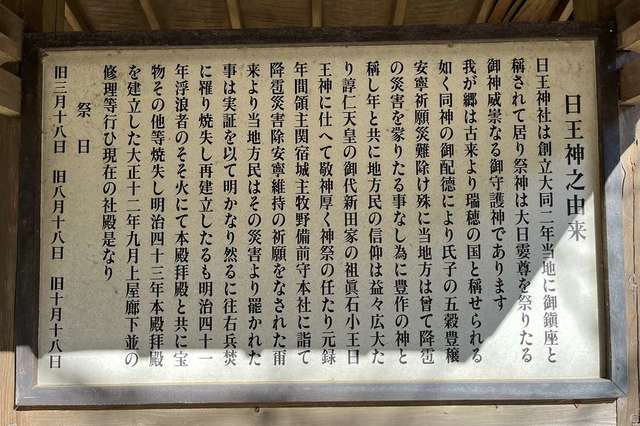 日王神之由来
日王神社は創立大同二年当地に御鎮座と
称されて居り祭神は大日孁尊を祭りたる
御神威崇なる御守護神であります
我が郷は古来より瑞穂の国と称せられる
如く同神の御配徳により氏子の五穀豊穣
安寧祈願災難除け殊に当地方は曽て降雹
の災害を蒙りたる事なし為に豊作の神と
称し年と共に地方民の信仰は益々広大た
り諄仁天皇の御代新田家の祖眞石小王日
王神に仕へて敬神厚く神祭の任たり元録
年間領主関宿城主牧野備前守本社に詣て
降雹災害除安寧維持の祈願をなされた爾
来より当地方民はその災害より罹かれた
事は実証を以て明かなり然るに往右兵焚
に罹り焼失し再建立したるも明治四十一
年浮浪者のそそ火にて本殿拝殿と共に宝
物その他等焼失し明治四十三年本殿拝殿
を建立した大正十二年九月上屋廊下並の
修理等行ひ現在の社殿是なり
祭日
旧三月十八日 旧八月十八日 旧十月十八日